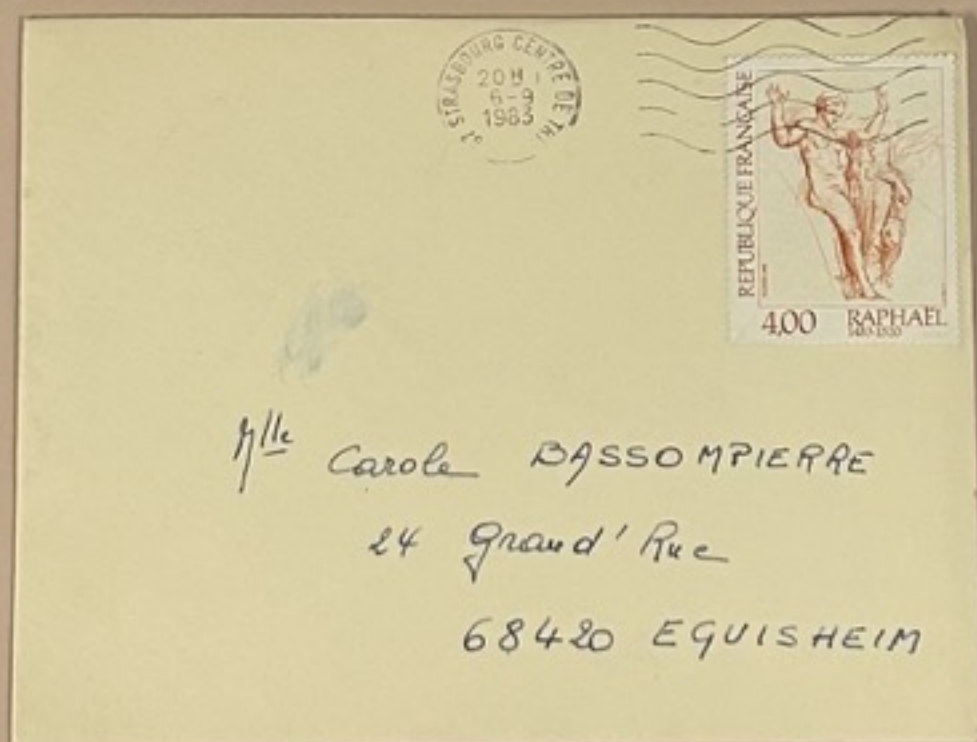 67 STRASBOURG CENTRE DE TRI
20H
6-9
1983
REPUBLIQUE FRANÇAISE
4,00 RAPHAËL
1483-1520
Mlle Carole BASSOMPIERRE
24 Grand' Rue
68420 EGUISHEIM